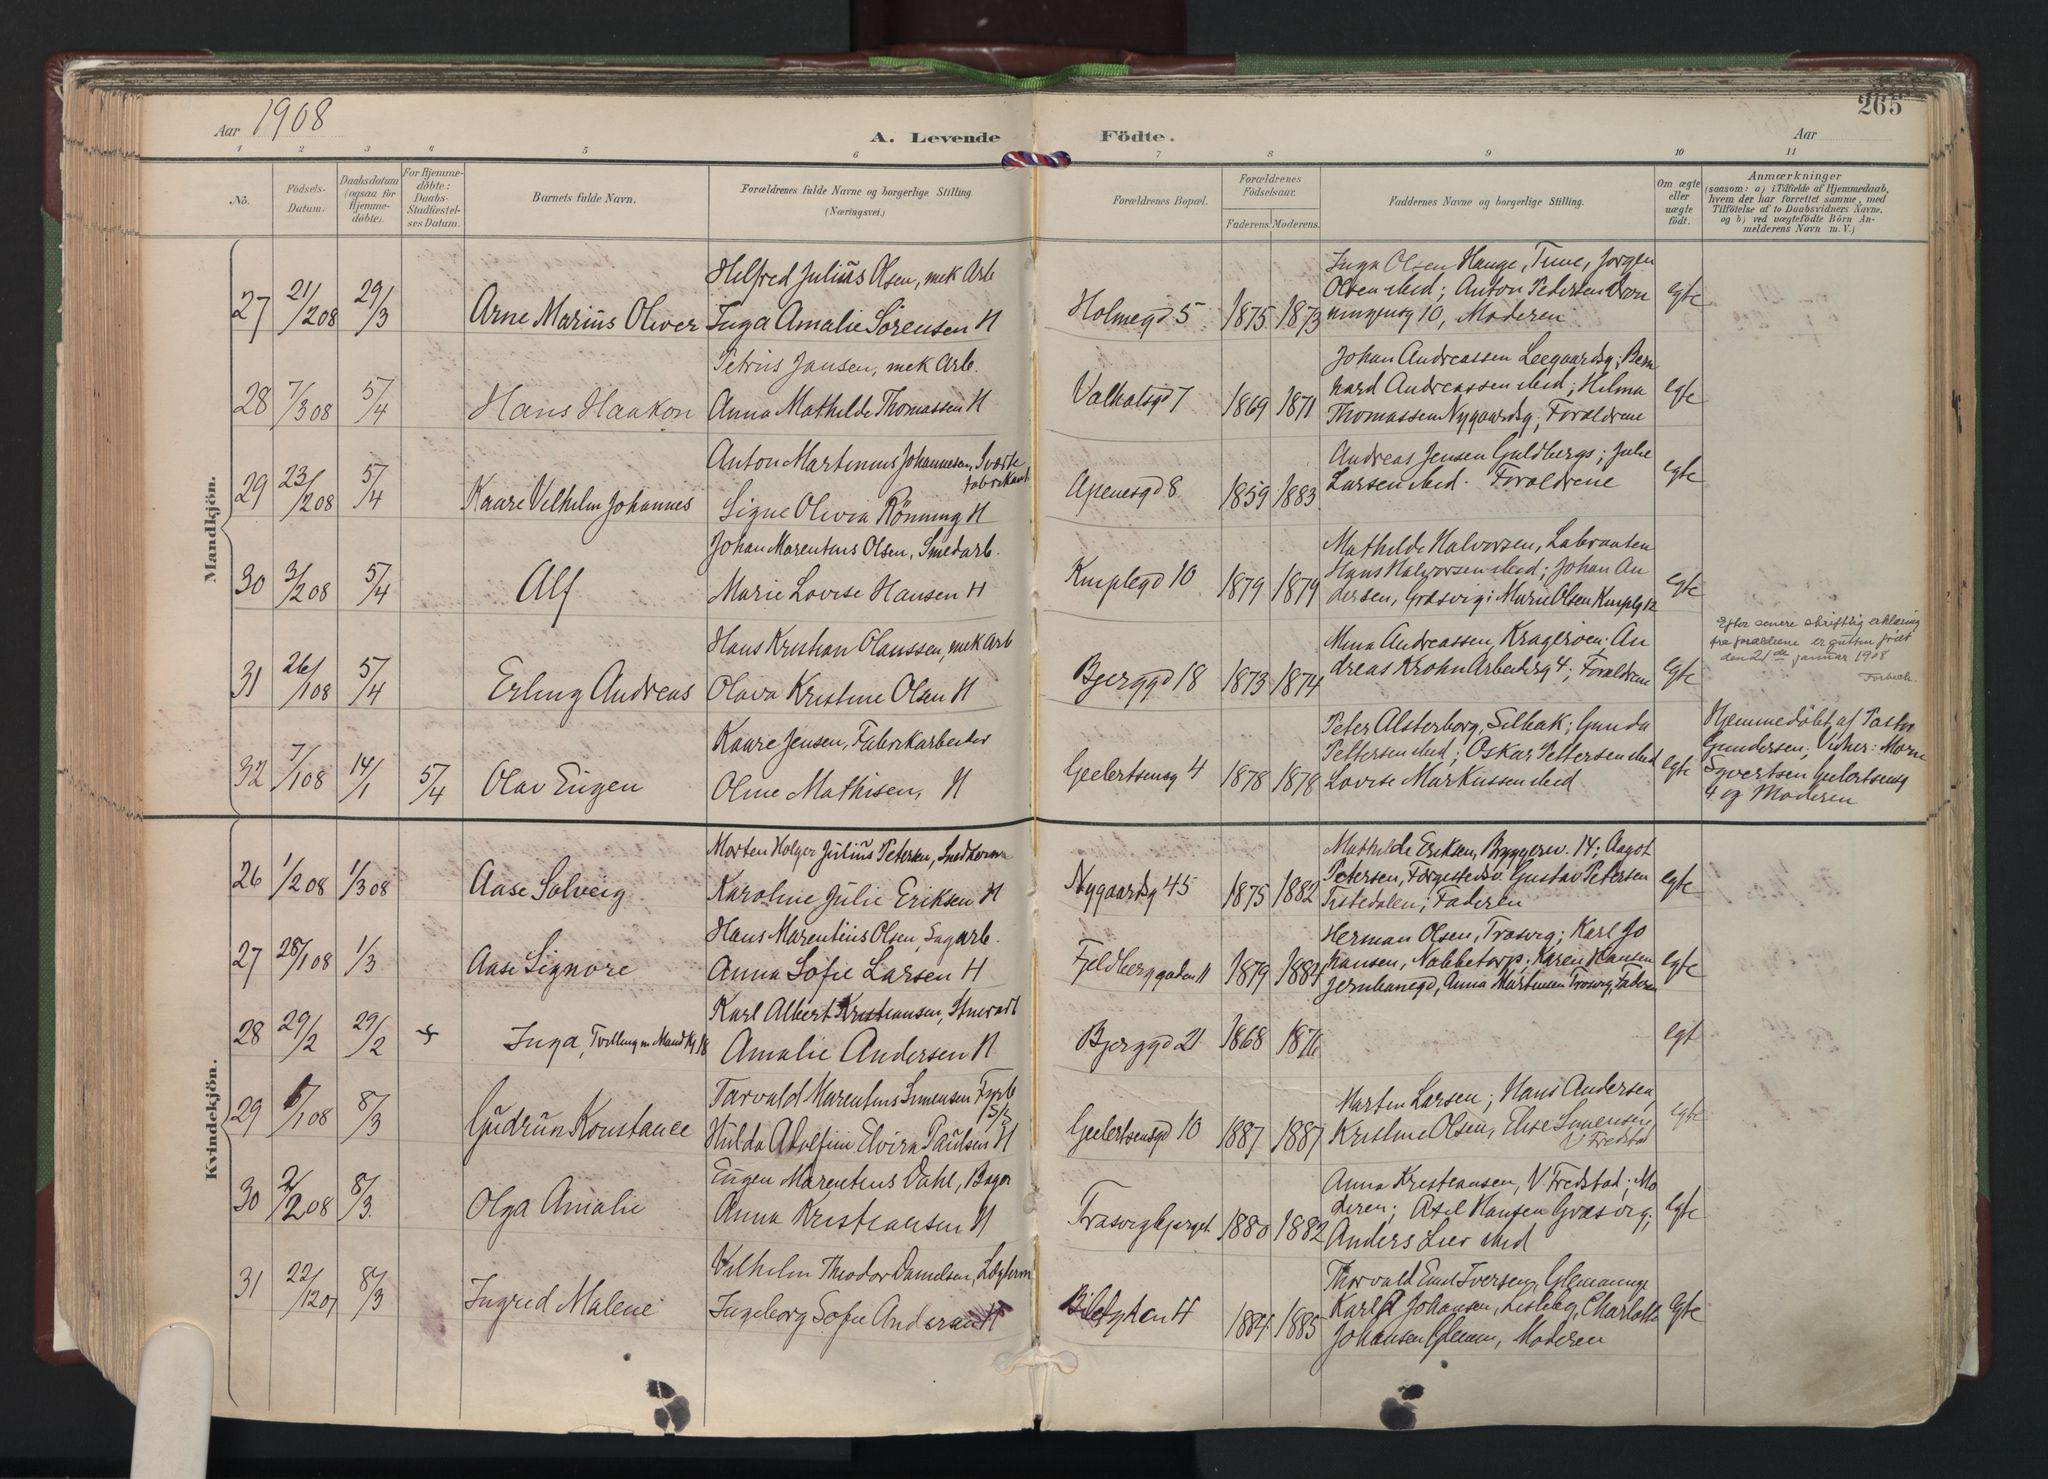 Aar 1908
A. Levende Födte.
Aar
265
1 2 3 4 5 6 7 8 9 10 11
No.
Födsels-Datum.
Daabsdatum (ogsaa for Hjemmedöbte).
For Hjemmedöbte: Daabs-Stadfæstelses Datum.
Barnets fulde Navn.
Forældrenes fulde Navne og borgerlige Stilling.
(Næringsvei.)
Forældrenes Bopæl.
Forældrenes Födselsaar.
Faderens. Moderens.
Faddernes Navne og borgerlige Stilling.
Om ægte eller uægte födt.
Anmærkninger
(saasom: a) i Tilfælde af Hjemmedaab, hvem der har forrettet samme, med Tilföielse af to Daabsvidners Navne, og b) ved uægtefödte Börn Anmelderens Navn m. V.)
Mandkjön.
27 21/2 08 29/3 Arne Marius Oliver
Hilfred Julius Olsen, mek Arb
Inga Amalie Sörensen H
Holmegd 5 1875 1873
Inga Olsen Hauge, Tune, Jorgen
Olsen ibid; Anton Petersen Dron
ningensg 10, Moderen
egte
28 7/3 08 5/4 Hans Haakon
Petrus Jansen, mek Arb.
Anna Mathilde Thomassen H
Valhalsgd 7 1869 1871
Johan Andreassen Leegaardsg; Bern
hard Andreassen ibid; Hilma
Thomassen Nygaardsg; Foraldrene
egte
29 23/2 08 5/4 Kaare Vilhelm Johannes
Anton Martinius Johannesen,
fabrikant
Signe Olivia Rönning H
Apenesgd 8 1859 1883
Andreas Jensen Guldbergs; Julie
Larsen ibid. Foraldrene
egte
30 3/2 08 5/4 Alf
Johan Marentius Olsen, Smedarb.
Marie Lovise Hansen H
Kniplegd 10 1879 1879
Mathilde Halvorsen, Labraaten
Hans Halvorsen ibid; Johan An
dersen, Græsvig; Marie Olsen Kniplg 12
egte
31 26/1 08 5/4 Erling Andreas
Hans Kristian Olaussen, mek Arb
Olava Kristine Olsen H
Bjerggd 18 1873 1874
Mina Andreassen, Krageröen; An
dreas Krohn Arbeiderg 4; Foraldrene
egte
Efter senere skriftlig erklæring
fra forældrene er gutten födt
den 21de januar 1908
32 7/1 08 14/1 5/4 Olav Eugen
Kaare Jensen, Fabrikarbeider
Oline Mathisen, H
Geelertsensg 4 1878 1878
Peter Alsterborg, Selbak; Gunda
Pettersen ibid; Oskar Pettersen ibid
Lovise Markussen ibid
egte
Hjemmedöbt af Pastor
Gundersen; Vidner:
Syvertsen Geelertsensg
4 og Moderen
Kvindekjön.
26 1/2 08 1/3 08 Aase Solveig
Morten Holger Julius Petersen,
Karoline Julie Eriksen H
Nygaardsg 45 1875 1882
Mathilde Eriksen, Bryggeriv. 14; Aagot
Petersen, Gustav Petersen
Tistedalen; Faderen
egte
27 28/1 08 1/3 Aase Signore
Hans Marentius Olsen, Sagarb.
Anna Sofie Larsen H
Fjeldberggaden 11 1879 1884
Herman Olsen, Trosvig; Karl Jo
hansen, Nabbetorp; Karen Hansen
Jernbanegd, Anna Martinsen Trosvig, Faderen
egte
28 29/2 29/2 Inga, Tvilling m Mandkj 18
Karl Albert Kristiansen,
Amalie Andersen H
Bjerggd 21 1868 1876
egt
29 6/1 08 8/3 Gudrun Konstance
Torvald Marentius Simensen Fyrb
Hulda Adolfine Elvira Paulsen H
Geelertsensgd 10 1887 1887
Martin Larsen; Hans Andersen,
Kristine Olsen, Elise Simensen
V Fredstad
egte
30 2/2 08 8/3 Olga Amalie
Eugen Marentius Dahl, Bager
Anna Kristiansen H
Trosvigbjerget 1880 1882
Anna Kristiansen, V. Fredstad; Mo
deren; Axel Hansen Græsvig;
Anders Lier ibid
egte
31 22/12 07 8/3 Ingrid Malene
Vilhelm Theodor Danielsen,
Ingeborg Sofie Andersen H
1884 1885
Thorvald Emil Iversen, Glemminge
Karl Johansen, Lisleby, Charlotte
Johansen Glemm, Moderen
egte